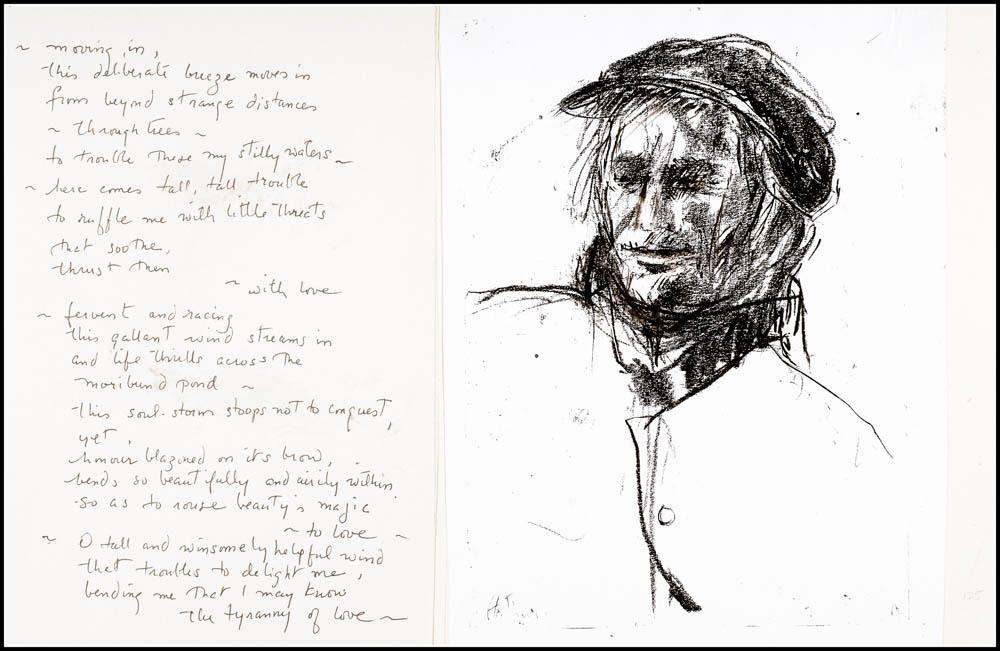 ~ moving in,
this deliberate breeze moves in
from beyond strange distances
~ through trees ~
to trouble these my stilly waters ~
~ here comes tall, tall trouble
to ruffle me with little threats
that soothe,
thrust then
~ with love
~ fervent and racing
this gallant wind streams in
and life thrills across the
moribund pond ~
this soul-storm stoops not to conquest,
yet,
honour blazoned on it's brow,
bends so beautifully and airily within
so as to rouse beauty's magic
~ to love ~
~ O tall and winsomely helpful wind
that troubles to delight me,
bending me that I may know
the tyranny of love ~
125